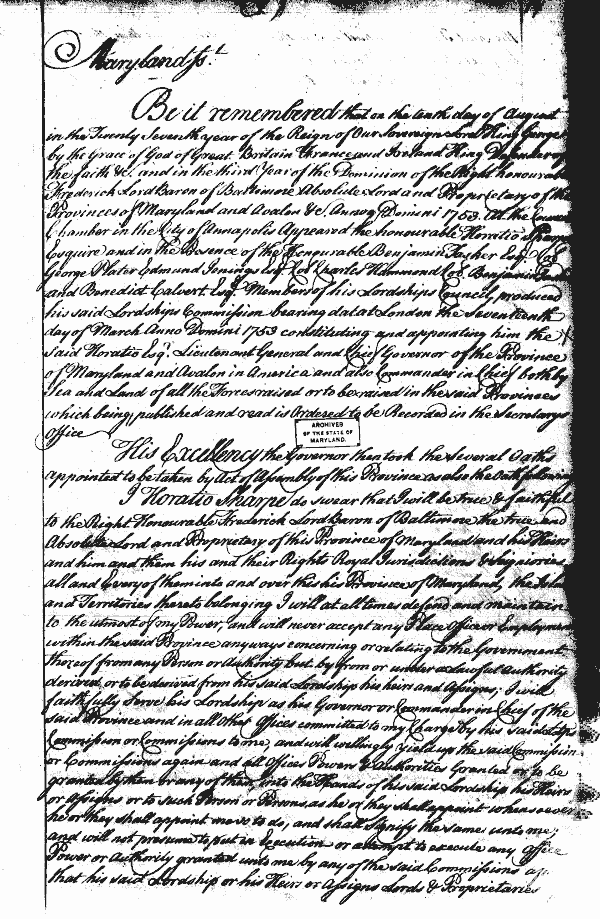 Maryland ss.t
Be it remembered that on the tenth day of August
in the Twenty Seventh year of the Reign of Our Sovereign Lord King George
by the Grace of God of Great Britain France and Ireland King Defender of
the faith &c. and in the third Year of the Dominion of the Right honourab
Frederick Lord Baron of Baltimore Absolute Lord and Proprietary of the
Provinces of Maryland and Avalon &c. Annoq Domini 1753. At the Council
Chamber in the City of Annapolis Appeared the honourable Horatio Sharpe
Esquire and in the Presence of the Honourable Benjamin Tasker Esqr. Col.
George Plater Edmund Jenings Esqr. Col. Charles Hammond Col. Benjamin
and Benedict Calvert Esqr. Members of his Lordships Council, produced
his said Lordships Commission bearing dat at London the Seventeenth
day of March Anno Domini 1753 constituting and appointing him the
said Horatio Esqr. Lieutenant General and Chief Governor of the Province
of Maryland and Avalon in America and also Commander in Chief both by
Sea and Land of all the Forces raised or to be raised in the said Provinces
which being published and read is Ordered to be Recorded in the Secretarys
office
ARCHIVES
OF THE STATE OF
MARYLAND.
His Excellency the Governor then took the several Oaths
appointed to be taken by Act of Assembly of this Province as also the Oath following
I Horatio Sharpe do swear that I will be true & faithful
to the Right Honourable Frederick Lord Baron of Baltimore the true and
Absolute Lord and Proprietary of this Province of Maryland and his Heirs
and him and them his and their Rights Royal Jurisdictions & Seigniories
all and Every of them into and over this his Province of Maryland, the Islan
and Territories thereto belonging I will at all times defend and maintain
to the utmost of my Power, and will never accept any Place Office or Employmen
within the said Province anyways concerning or relating to the Government
thereof from any Person or Authority but by from or under a Lawful Authority
derived or to be derived from his said Lordship his heirs and Assigns; I will
faithfully Serve his Lordship as his Governor or Commander in Chief of the
said Province and in all other Offices committed to my Charge by his said Lordships
Commission or Commissions to me, and will willingly Yield up the said Commission
or Commissions again and all Offices Powers & Authorities Granted or to be
granted by them or any of them, into the Hands of his said Lordship his Heirs
or Assigns or to such Person or Persons, as he or they shall appoint whensoever
he or they shall appoint me so to do, and shall Signify the same unto me;
and will not presume to put in Execution or attempt to execute any Office
Power or Authority granted unto me by any of the said Commissions
that his said Lordship or his Heirs or Assigns Lords & Proprietaries